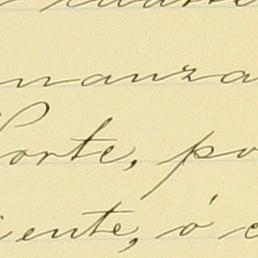 nanza
Norte, po
iente, ó c